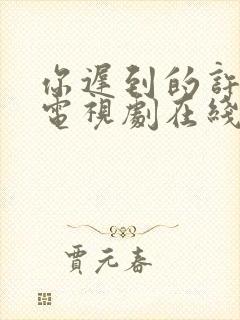 你遲到的許
電視劇在綫
賈元春